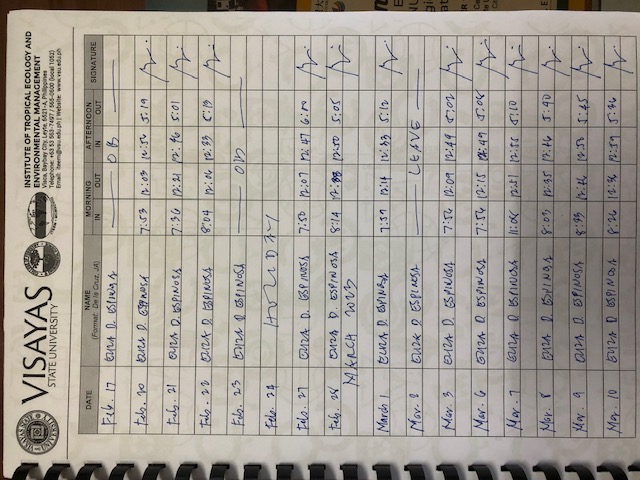 VISAYAS
STATE UNIVERSITY
INSTITUTE OF TROPICAL ECOLOGY AND
ENVIRONMENTAL MANAGEMENT
Visca, Baybay City, Leyte, 6521-A, Philippines
Email: item@vsu.edu.ph | Website: www.vsu.edu.ph
DATE NAME MORNING AFTERNOON SIGNATURE
(Format: De la Cruz, JA) IN OUT IN OUT
Feb. 17 ELIZA D. ESPINOSA OB
Feb. 20 ELIZA D. ESPINOSA 7:53 12:03 12:56 5:19
Feb. 21 ELIZA D. ESPINOSA 7:36 12:21 12:46 5:01
Feb. 22 ELIZA D. ESPINOSA 8:04 12:06 12:33 5:13
Feb. 23 ELIZA D. ESPINOSA OB
Feb. 24 HOLIDAY
Feb. 27 ELIZA D. ESPINOSA 7:50 12:07 12:47 6:10
Feb. 28 ELIZA D. ESPINOSA 8:14 12:50 5:05
MARCH 2023
March 1 ELIZA D. ESPINOSA 7:59 12:14 12:33 5:12
Mar. 2 ELIZA D. ESPINOSA LEAVE
Mar. 3 ELIZA D. ESPINOSA 7:56 12:09 12:49 5:02
Mar. 6 ELIZA D. ESPINOSA 7:56 12:15 12:49 5:06
Mar. 7 ELIZA D. ESPINOSA 12:51 12:55 5:10
Mar. 8 ELIZA D. ESPINOSA 8:03 12:35 12:46 5:40
Mar. 9 ELIZA D. ESPINOSA 12:46 5:45
Mar. 10 ELIZA D. ESPINOSA 8:26 12:36 12:59 5:36